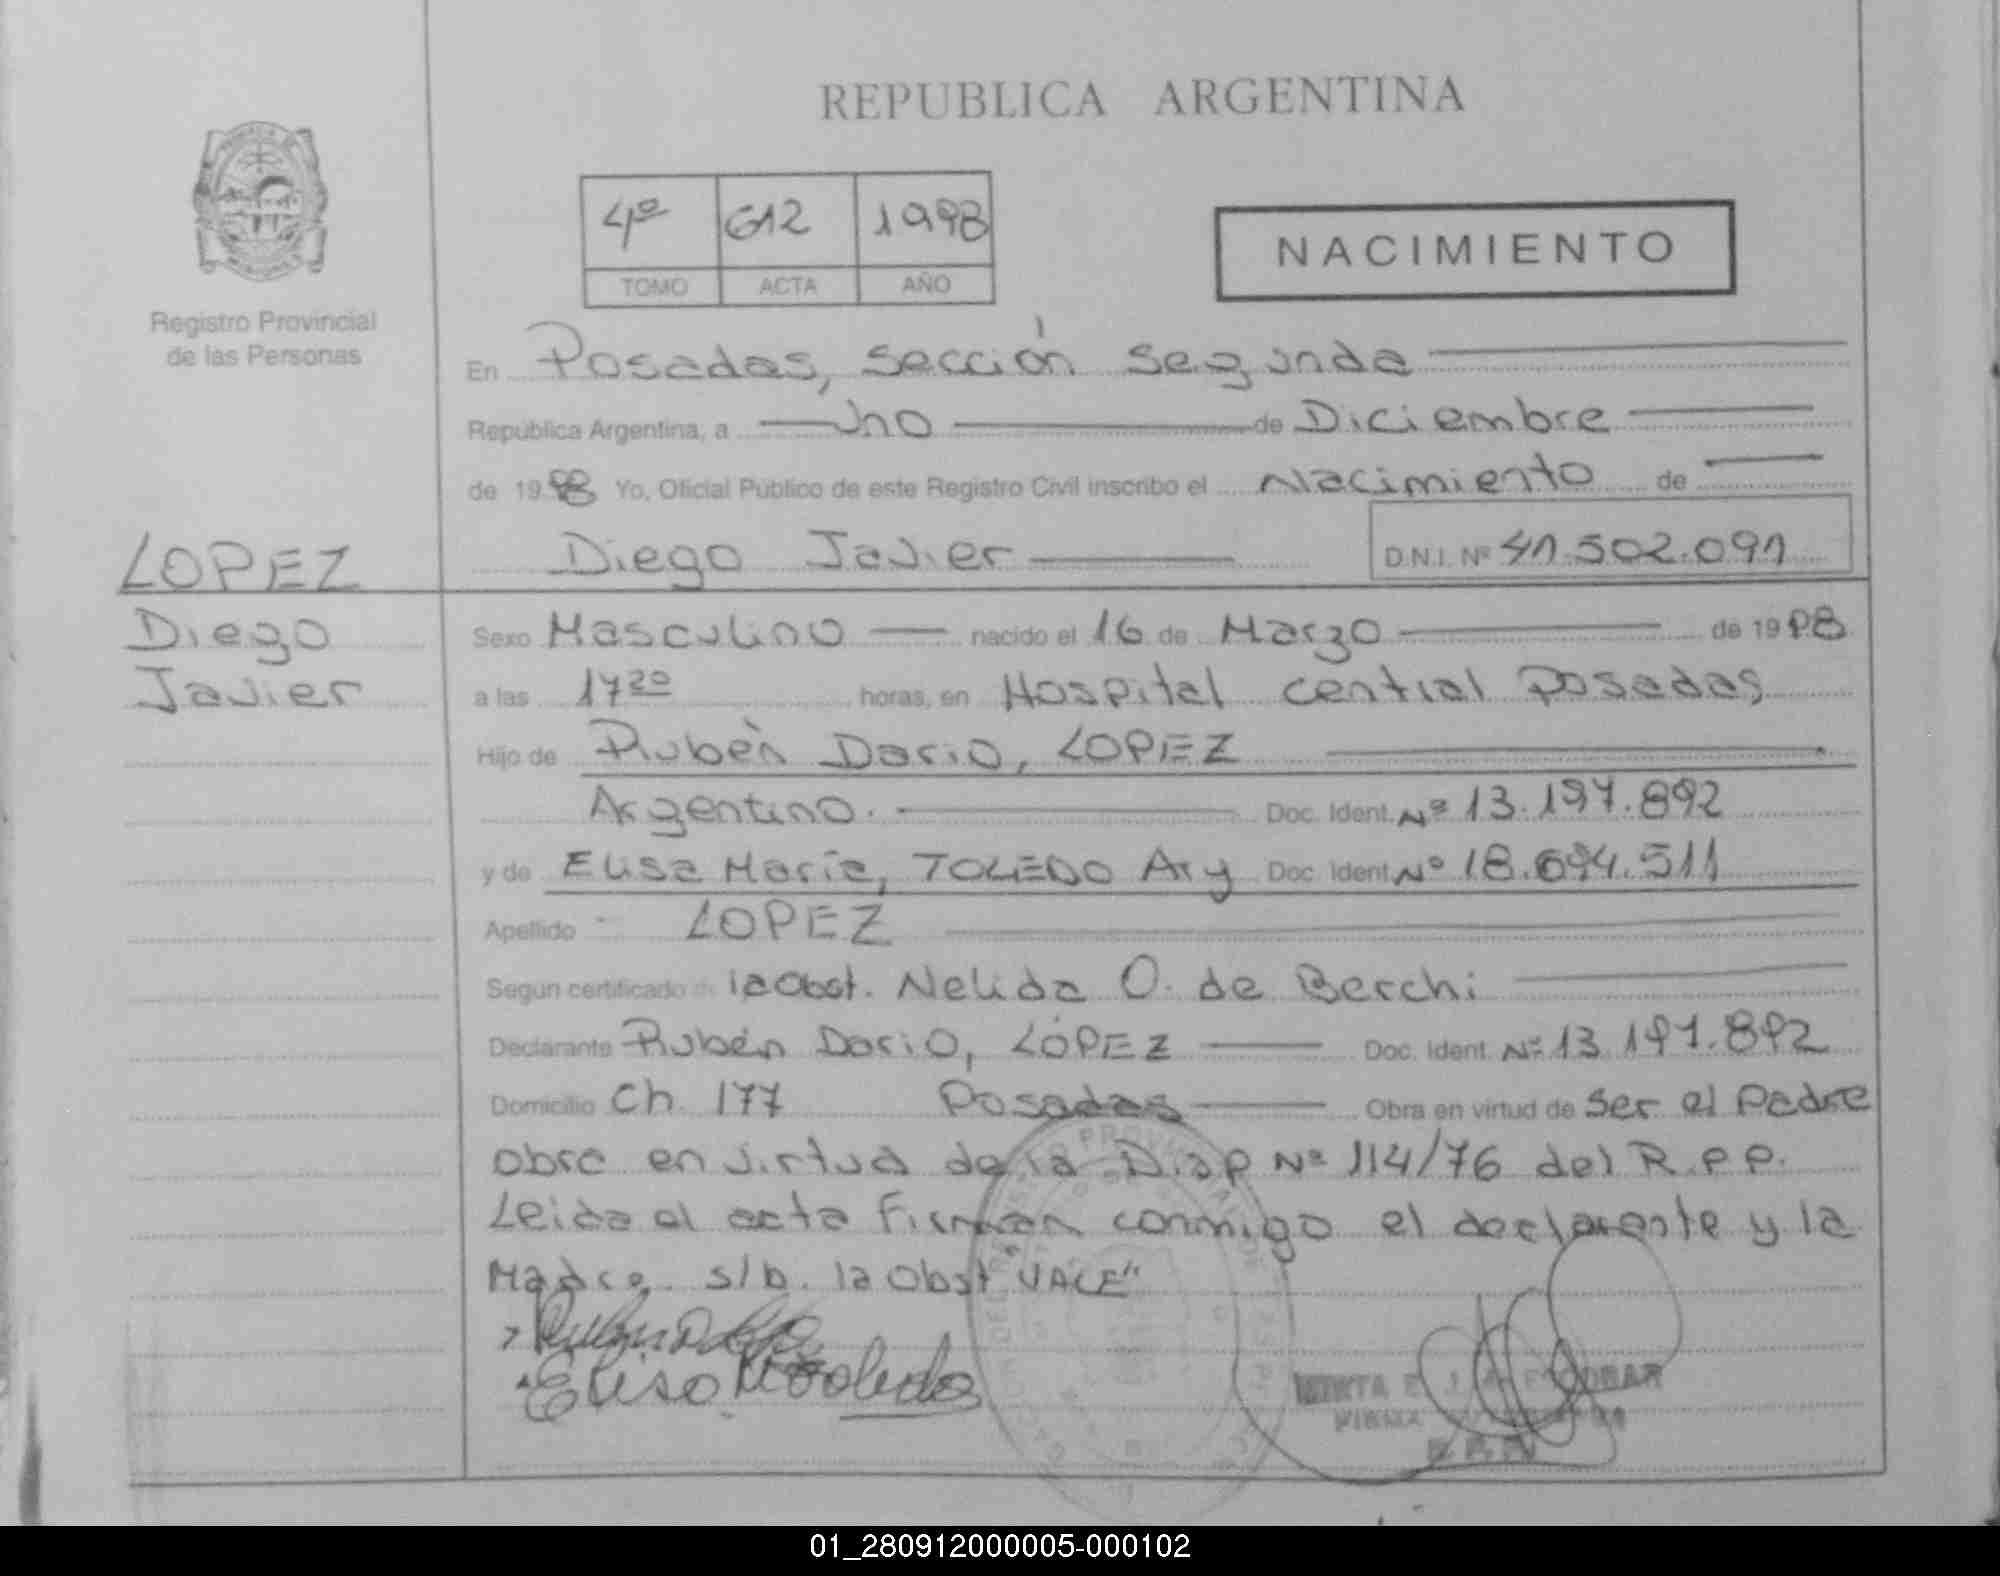 REPUBLICA ARGENTINA
4º 612 1998
TOMO ACTA AÑO
NACIMIENTO
Registro Provincial
de las Personas
En Posadas, sección segunda
República Argentina, a uno de Diciembre
de 1998 Yo, Oficial Público de este Registro Civil inscribo el Nacimiento de
LOPEZ
Diego Javier
D.N.I. Nº 41.502.091
Diego
Javier
Sexo Masculino nacido el 16 de Marzo de 1998
a las 17 20 horas, en Hospital central Posadas
Hijo de Rubén Dario, LOPEZ
Argentino. Doc. Ident. Nº 13.197.892
y de Elisa María, TOLEDO Arg Doc. Ident. Nº 18.694.511
Apellido LOPEZ
Según certificado de la Obst. Nelida O. de Berchi
Declarante Rubén Dario, LÓPEZ Doc. Ident. Nº 13.197.892
Domicilio Ch. 177 Posadas Obra en virtud de Ser el Padre
obra en virtud de la Disp Nº 114/76 del R.P.P.
Leida el acta Firman conmigo el declarante y la
Madre. s/b. la Obst "VALE"
Elisa M Toledo
01_280912000005-000102